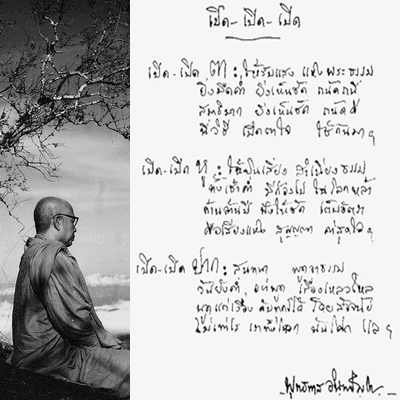 เปิด-เปิด-เปิด
เปิด-เปิด ตา : ให้รับแสง แห่งพระธรรม
ยิ่งมืดค่ำ ยิ่งเห็นชัด ถนัดถนี่
สมาธิมาก ยิ่งเห็นชัด ถนัดดี
นี่วิธี เปิดตาใจ ใช้กันมา ฯ
เปิด-เปิด หู : ให้ยินเสียง สำเนียงธรรม
ทั้งเช้าค่ำ มีก้องไป ในโลกหล้า
ล้านล้านปี ฟังให้ชัด เต็มอัตรา
คือเสียงแห่ง สุญญตา ค่าสุดใจ ฯ
เปิด-เปิด ปาก : สนทนา พูดจาธรรม
วันยังค่ำ อย่าพูด เรื่องเหลวไหล
พูดแต่เรื่อง ดับทุกข์ได้ โดยสัจนัย
ไม่เท่าไร เราทั้งโลก พ้นโศก แล ฯ
พุทธทาส อินฺทปญฺโญ